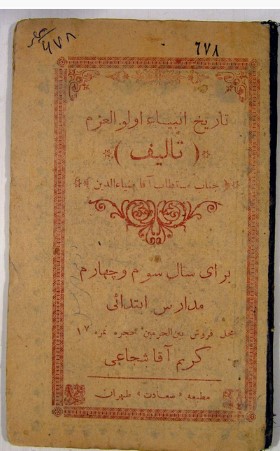 ٦٧٨
٦٧٨
تاریخ انبیاء اولوالعزم
(تالیف)
جناب مستطاب آقا ضیاءالدین
برای سال سوم و چهارم
مدارس ابتدائی
محل فروش بین‌الحرمین حجره نمره ١٧
کریم آقا شجاعی
مطبعه «سعادت» طهران